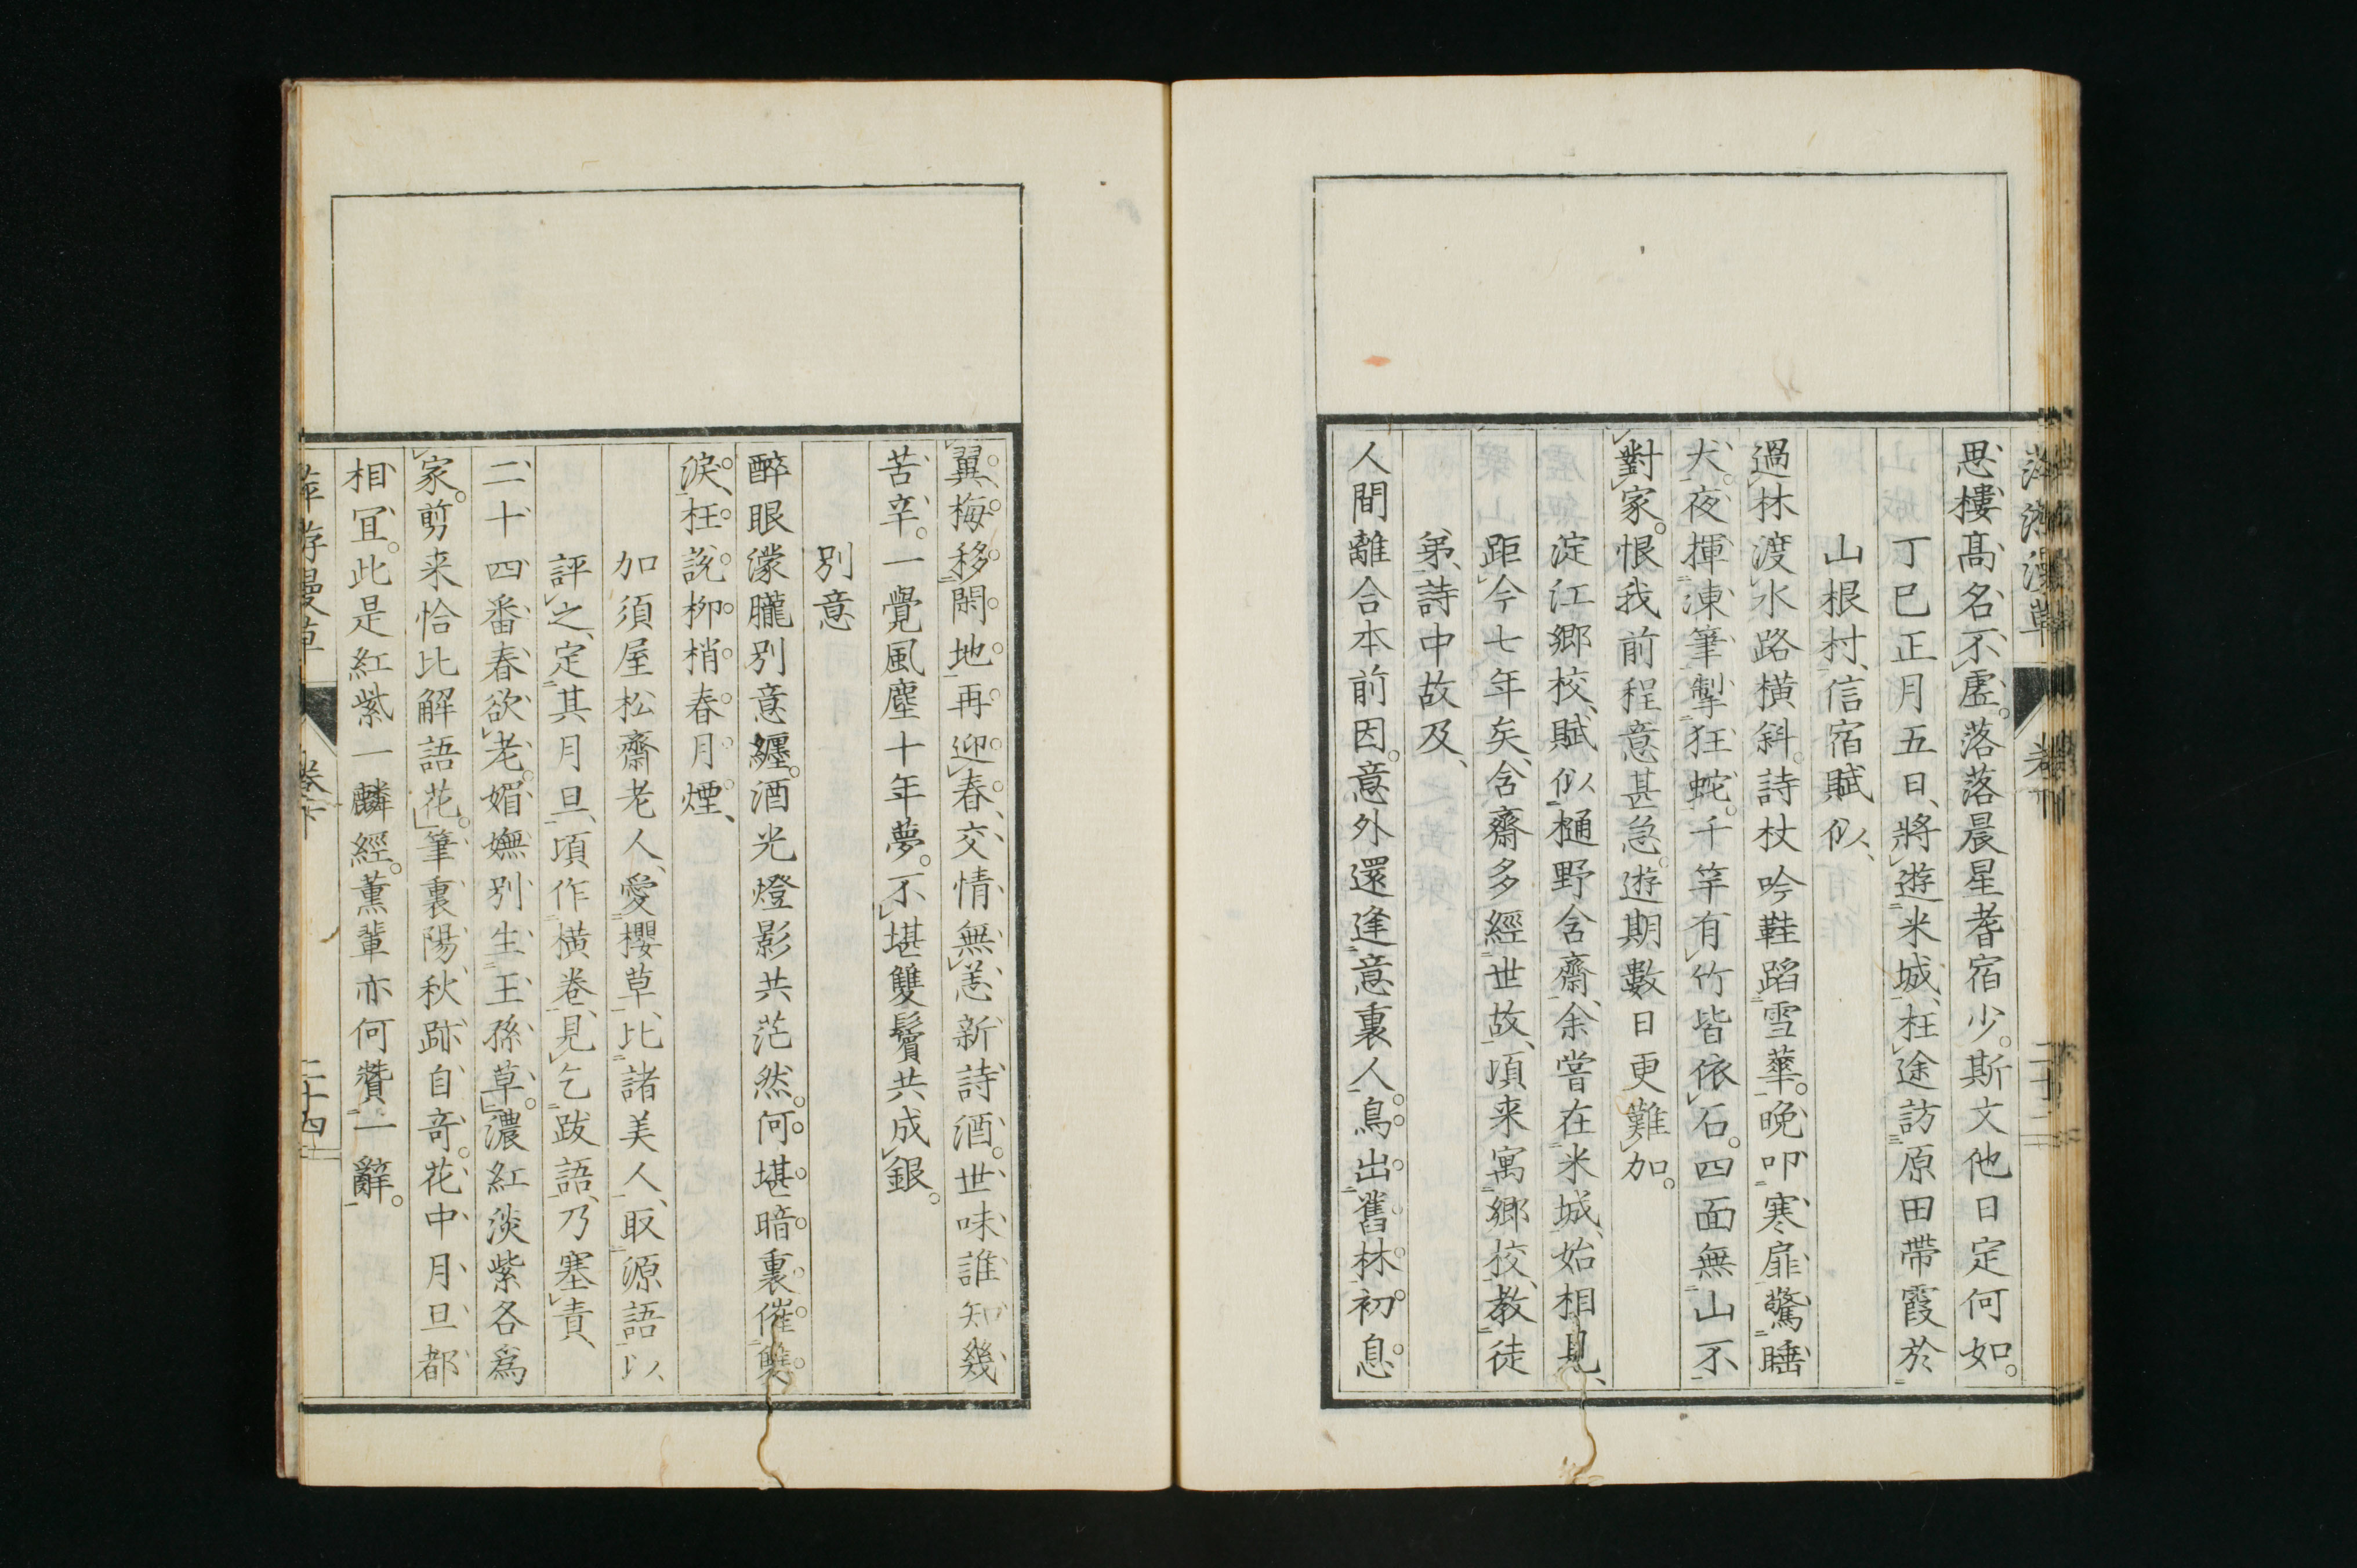 思樓高名不虛。落落晨星耆宿少。斯文他日定何如。
丁巳正月五日、將遊米城、枉途訪原田帶霞於
山根村、信宿賦似、
過林渡水路橫斜。詩杖吟鞋蹈雪華。晚叩寒扉驚睡
犬。夜揮凍筆掣狂蛇。千竿有竹皆依石。四面無山不
對家。恨我前程意甚急。遊期數日更難加。
淀江鄉校、賦似樋野含齋、余嘗在米城、始相見、
距今七年矣、含齋多經世故、頃来寓鄉校、教徒
弟、詩中故及、
人間離合本前因。意外還逢意裏人。鳥出舊林初息
翼。梅移閑地再迎春、交情無恙新詩酒。世味誰知幾
苦辛。一覺風塵十年夢。不堪雙鬢共成銀。
別意
醉眼濛朧別意纏。酒光燈影共茫然。何堪暗裏催雙
淚、枉說柳梢春月煙、
加須屋松齋老人、愛櫻草、比諸美人、取源語以
評之、定其月旦、頃作橫卷、見乞跋語、乃塞責、
二十四番春欲老。媚嫵別生王孫草。」濃紅淡紫各爲
家。剪来恰比解語花。」筆裏陽秋跡自奇。花中月旦都
相宜。此是紅紫一麟經。薰輩亦何贊一辭。
萍游漫草
卷下
二十四